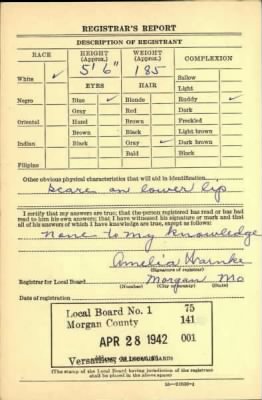 REGISTRAR'S REPORT
DESCRIPTION OF REGISTRANT
RACE HEIGHT (Approx.) WEIGHT (Approx.) COMPLEXION
5' 6" 185
White ✓ Sallow
EYES HAIR Light
Negro Blue ✓ Blonde Ruddy ✓
Gray Red Dark
Oriental Hazel Brown Freckled
Brown Black Light brown
Indian Black Gray ✓ Dark brown
Bald Black
Filipino
Other obvious physical characteristics that will aid in identification
Scare on lower lip
I certify that my answers are true; that the person registered has read or has had
read to him his own answers; that I have witnessed his signature or mark and that
all of his answers of which I have knowledge are true, except as follows:
None to my knowledge
Amelia Harnke
(Signature of registrar)
Registrar for Local Board Morgan Mo
(Number) (City or county) (State)
Date of registration
Local Board No. 1 75
Morgan County 141
APR 28 1942 001
Versailles, Missouri
(The stamp of the Local Board having jurisdiction of the registrant
shall be placed in the above space)